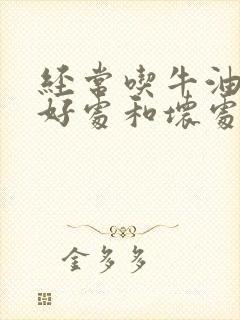 经常喫牛油
好處和壞處
金多多